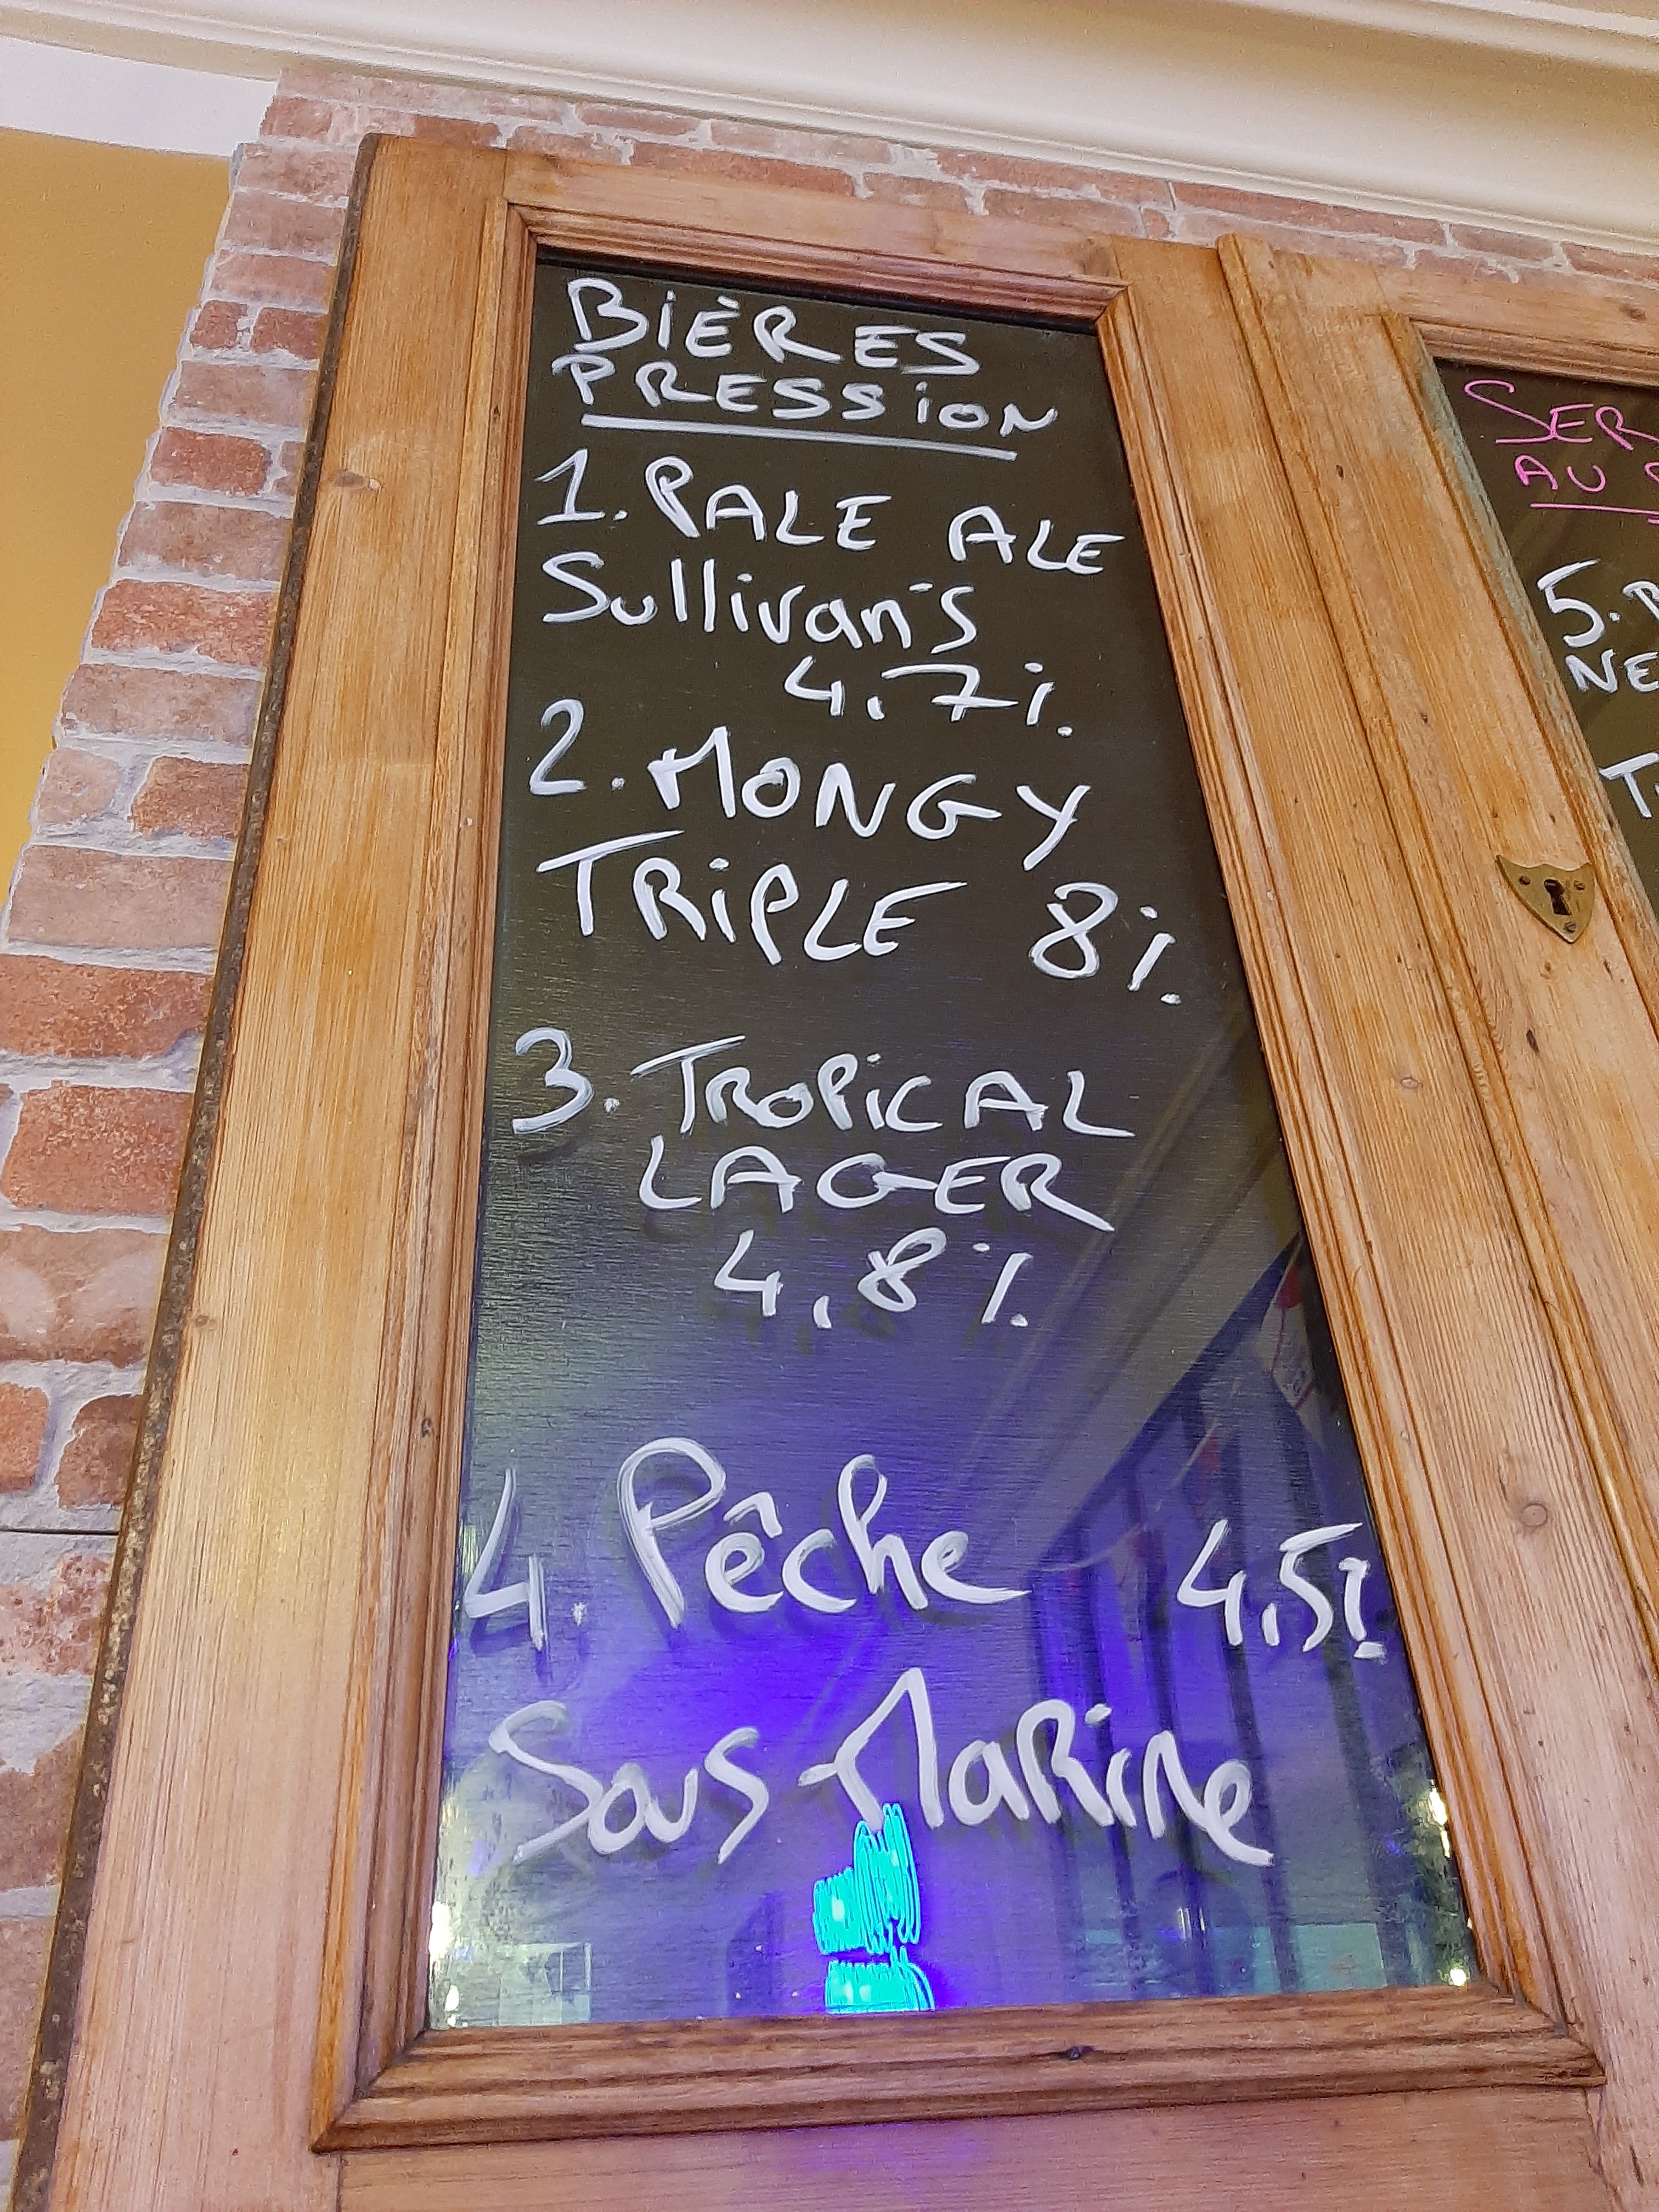 BIÈRES
PRESSION
1. PALE ALE
Sullivan's
4,7%
2. MONGY
TRIPLE 8%
3. TROPICAL
LAGER
4,8%
4. Pêche 4,5%
Sous Marine
AU
5.